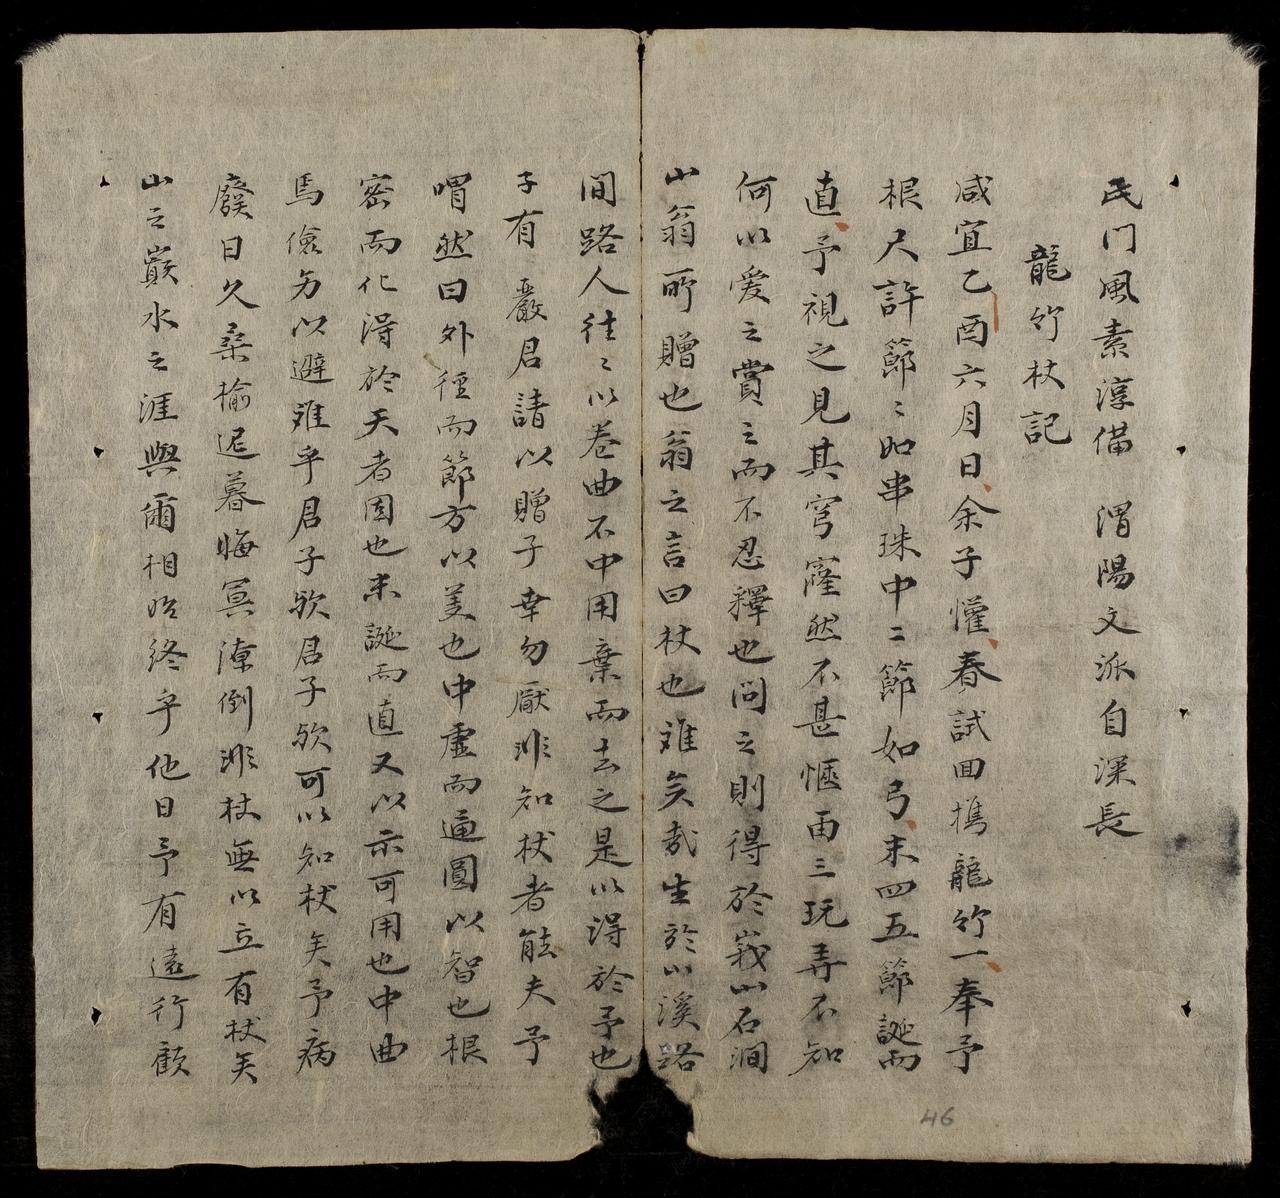 民門風素淳備 渭陽文派自深長
龍竹杖記
咸宜乙酉六月日余子懽春試回携龍竹一奉予
根尺許節〻如串珠中〻節如弓末四五節誕而
直予視之見其穹窿然不甚愜再三玩弄不知
何以愛之賞之而不忍釋也问之則得於峩山石澗
山翁所贈也翁之言曰杖也难矣哉生於山溪路
間路人往〻以卷曲不中用棄而去之是以得於予也
子有嚴君請以贈子幸勿厭非知杖者能夫予
喟然曰外徑而節方以美也中虚而通圓以智也根
密而化淂於天者固也末誕而直又以示可用也中曲
馬儉另以避难乎君子欤君子欤可以知杖矣予病
廢日久桑榆迟暮晦冥潦倒非杖無以立有杖矣
山之巅水之涯與爾相始終乎他日予有遠行顧
46